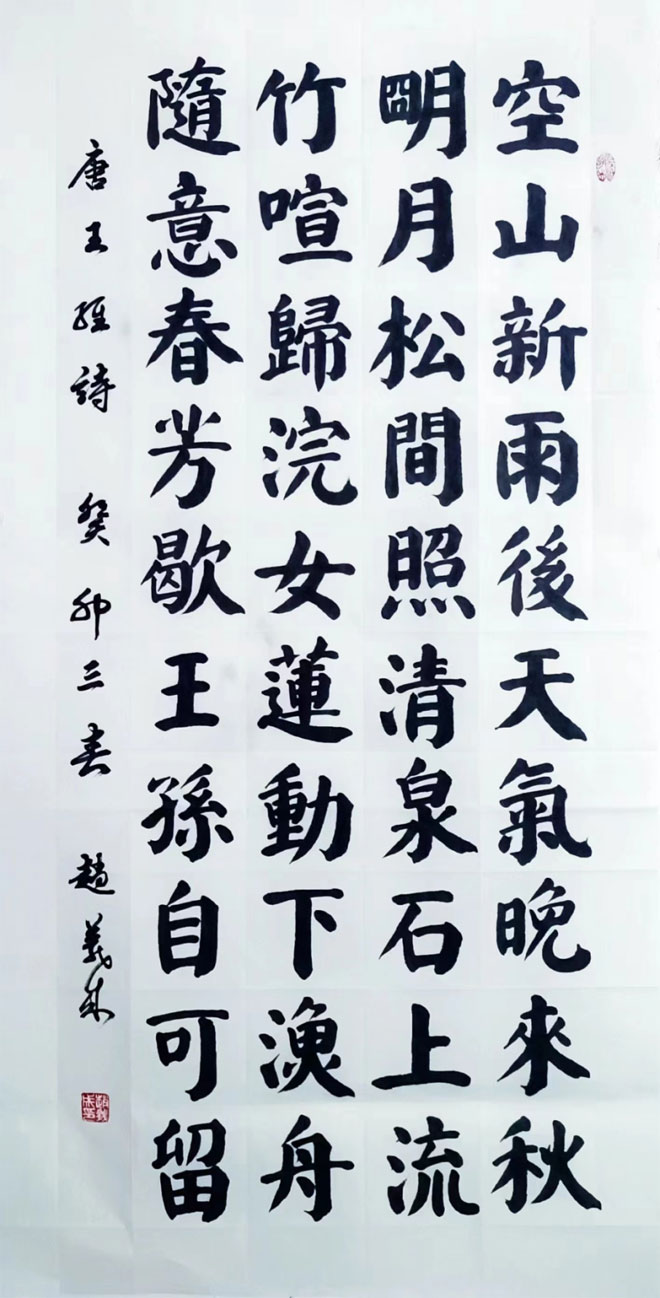 空山新雨後天氣晚來秋
明月松間照清泉石上流
竹喧歸浣女蓮動下漁舟
隨意春芳歇王孫自可留
唐王維詩 癸卯三春 趙義成